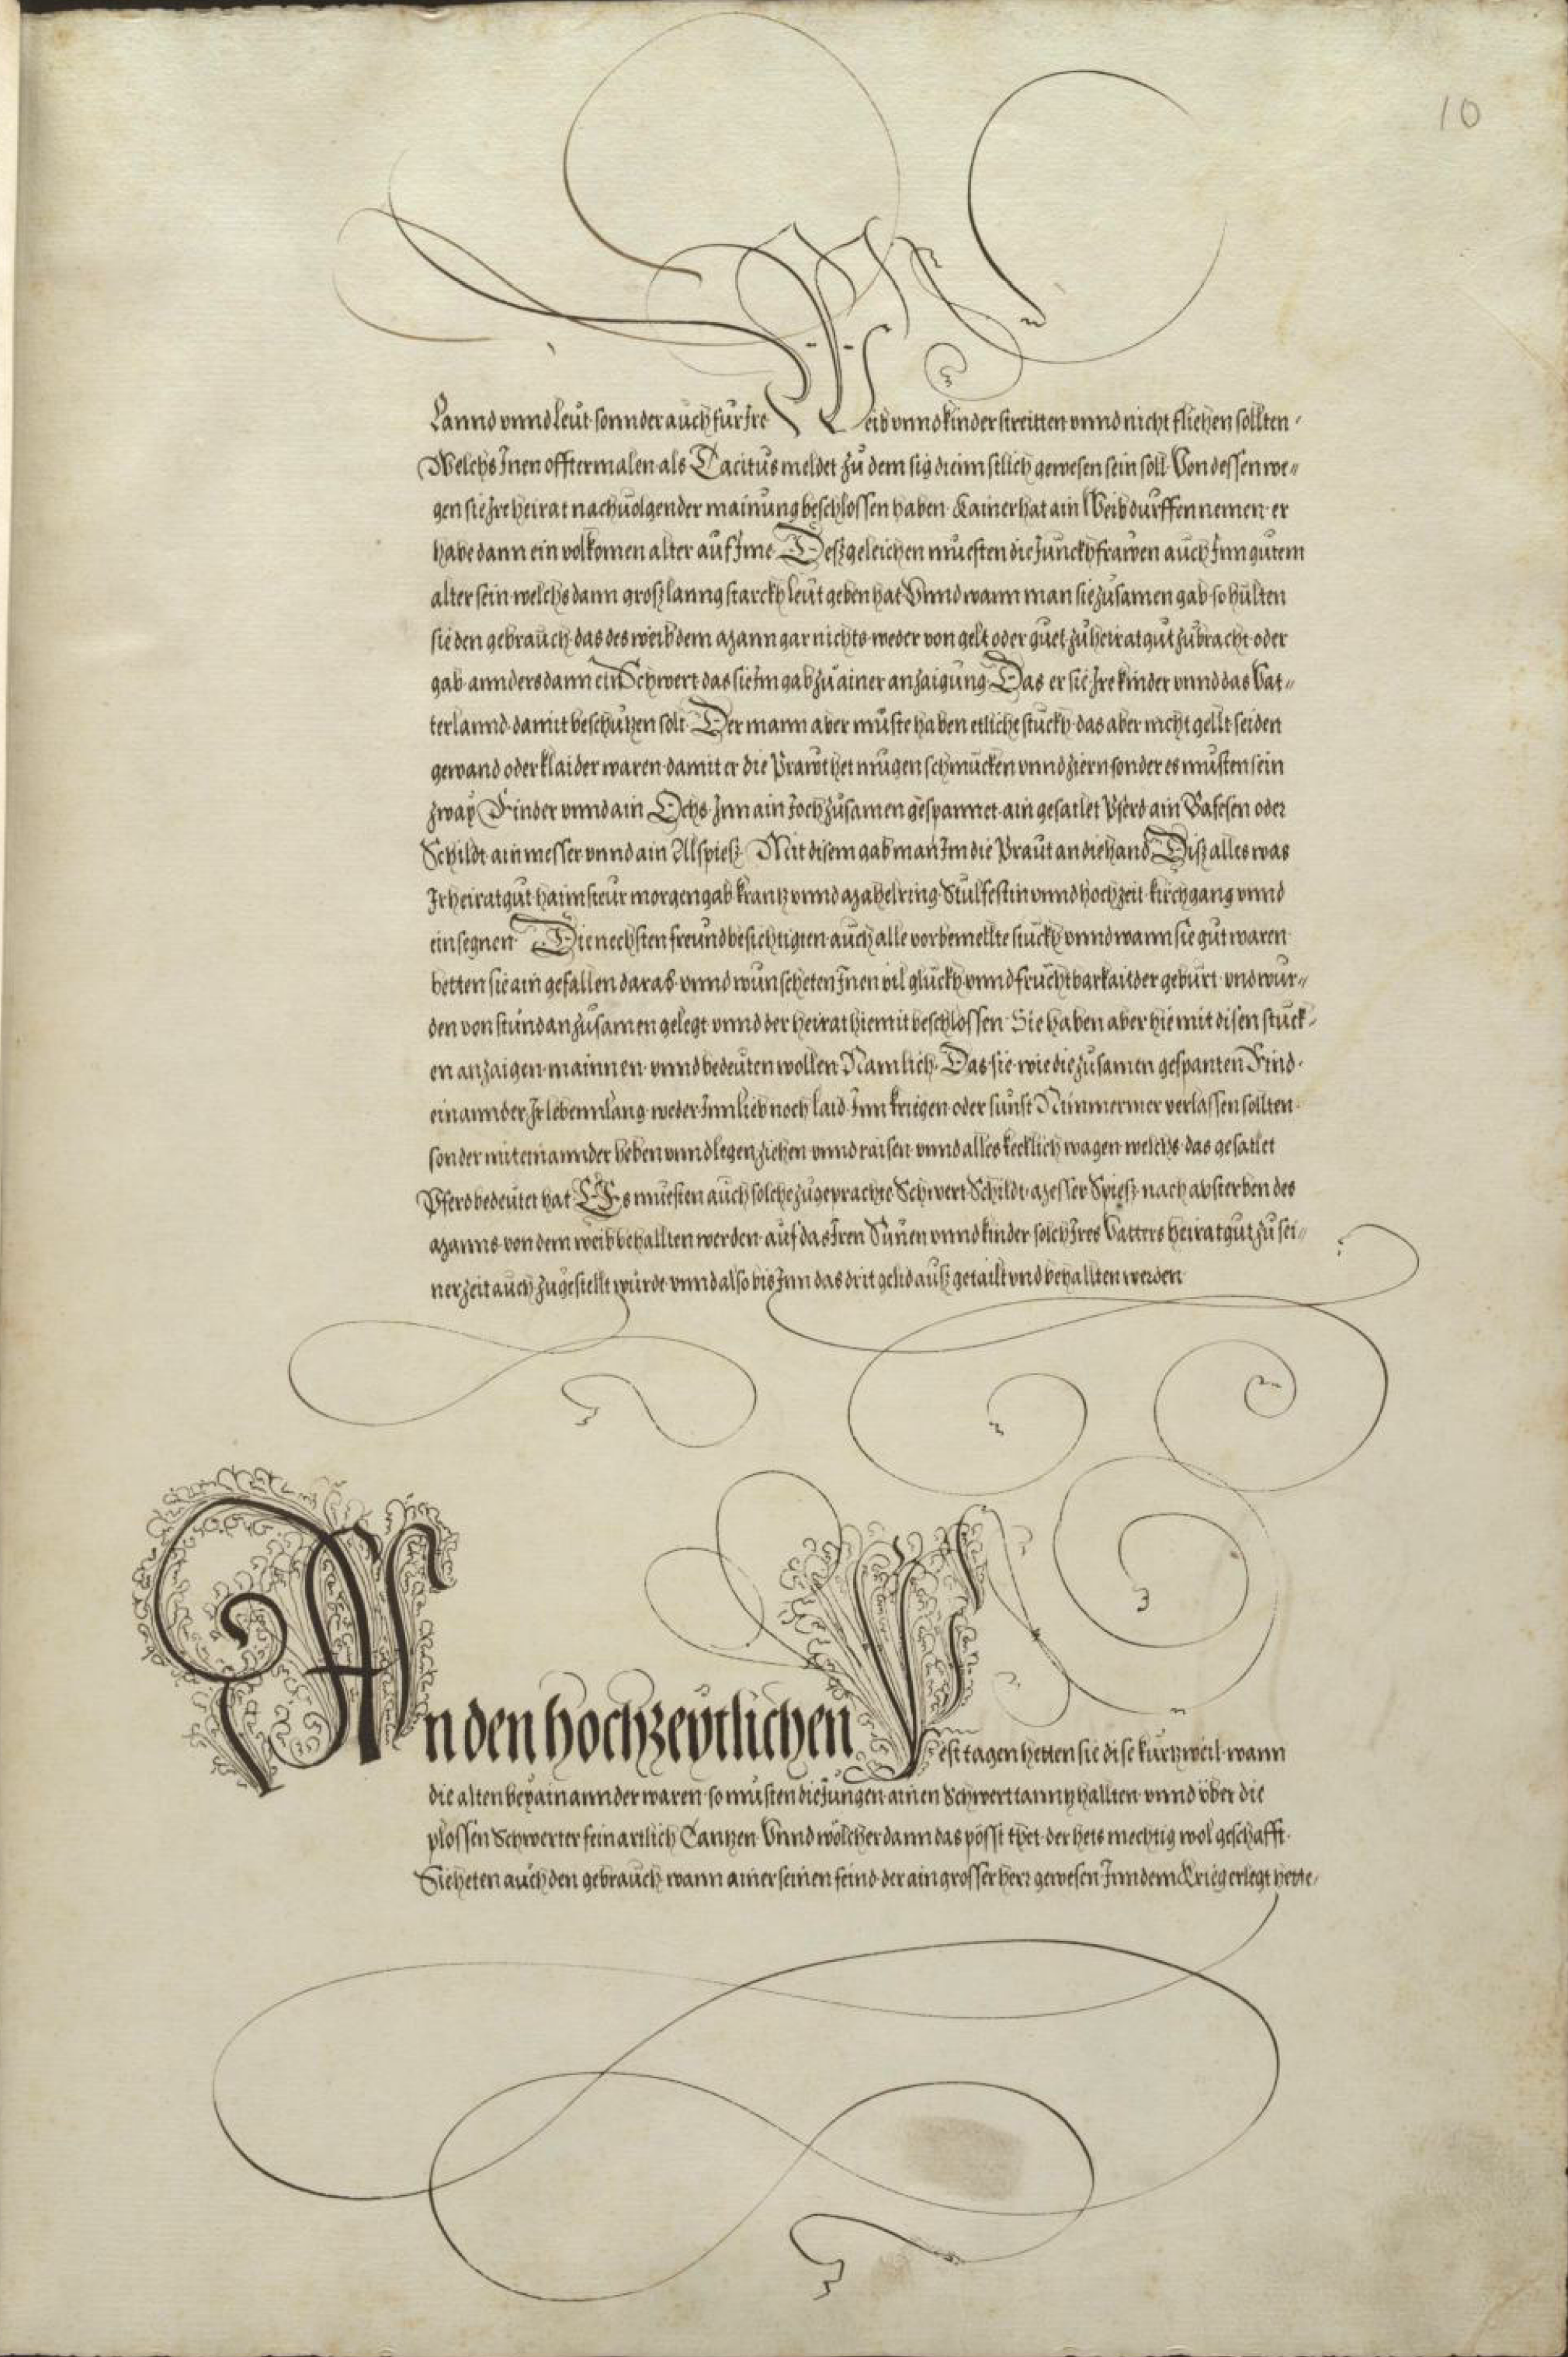 10
Lannd vnnd Leut sonnder auch fur Ire Weib vnnd kinder streitten vnnd nicht fliehen sollten
Welchs Inen offtermalen als Tacitus meldet zu dem sig dienstlich gewesen sein soll Von dessen we„
gen sie Ire heirat nachuolgender mainung beschlossen haben Kainer hat ain Weib durffen nemen er
habe dann ein volkomen alter auf Ime Deßgeleichen muesten die Junckhfrawen auch Inn gutem
alter sein welchs dann groß lanng starckh leut geben hat Vnnd wann man sie zusamen gab so hulten
sie den gebrauch das des weib dem mann gar nichts weder von gelt oder guet zu heiratgut zubracht oder
gab annders dann ein Schwert das sie Im gab zu ainer anzaigung Das er sie Ire kinder vnnd das Vat„
terlannd damit beschutzen solt Der mann aber muste haben etliche stuckh das aber nicht gellt seiden
gewand oder klaider waren damit er die Prawt het mugen schmucken vnnd ziern sonder es musten sein
zway Rinder vnnd ain Ochs Inn ain Joch zusamen gespannet ain gesatlet Pferd ain Pafesen oder
Schildt ain messer vnnd ain Alspieß Mit disem gab man Im die Praut an die hand Diß alles was
Ir heiratgut haimsteur morgengab krantz vnnd mahelring Stulfestin vnnd hochzeit kirchgang vnnd
einsegnen Die nechsten freund besichtigten auch alle vorbemellte stuckh vnnd wann sie gut waren
hetten sie ain gefallen darab vnnd wunscheten Inen vil gluckh vnnd fruchtbarkait der geburt vnd wur„
den von stund an zusamen gelegt vnnd der heirat hiemit beschlossen Sie haben aber hiemit disen stuck„
en anzaigen mainnen vnnd bedeuten wollen Namlich Das sie wie die zusamen gespanten Rind
einannder Ir lebennlang weder Inn lieb noch laid Inn kriegen oder sunst Nimmermer verlassen sollten
sonder miteinannder heben vnnd legen ziehen vnnd raisen vnnd alles kecklich wagen welchs das gesatlet
Pferd bedeutet hat Es muesten auch solche zugeprachte Schwert Schildt messer Spieß nach absterben des
manns von dem weib behallten werden auf das Iren Sunen vnnd kinder solch Ires Vatters heiratgut zu sei„
ner zeit auch zugestellt wurde vnnd also bis Inn das drit gelid auß getailt vnd behallten werden
An den hochzeytlichen Fest tagen hetten sie dise kurtzweil wann
die alten bey ainannder waren so musten die Jungen ainen Schwerttanntz hallten vnnd vber die
plossen Schwerter fein artlich Tantzen Vnnd wölcher dann das pösst thet der hets mechtig wol geschafft
Sie heten auch den gebrauch wann ainer seinen feind der ain grosser herr gewesen Inn dem Krieg erlegt hette